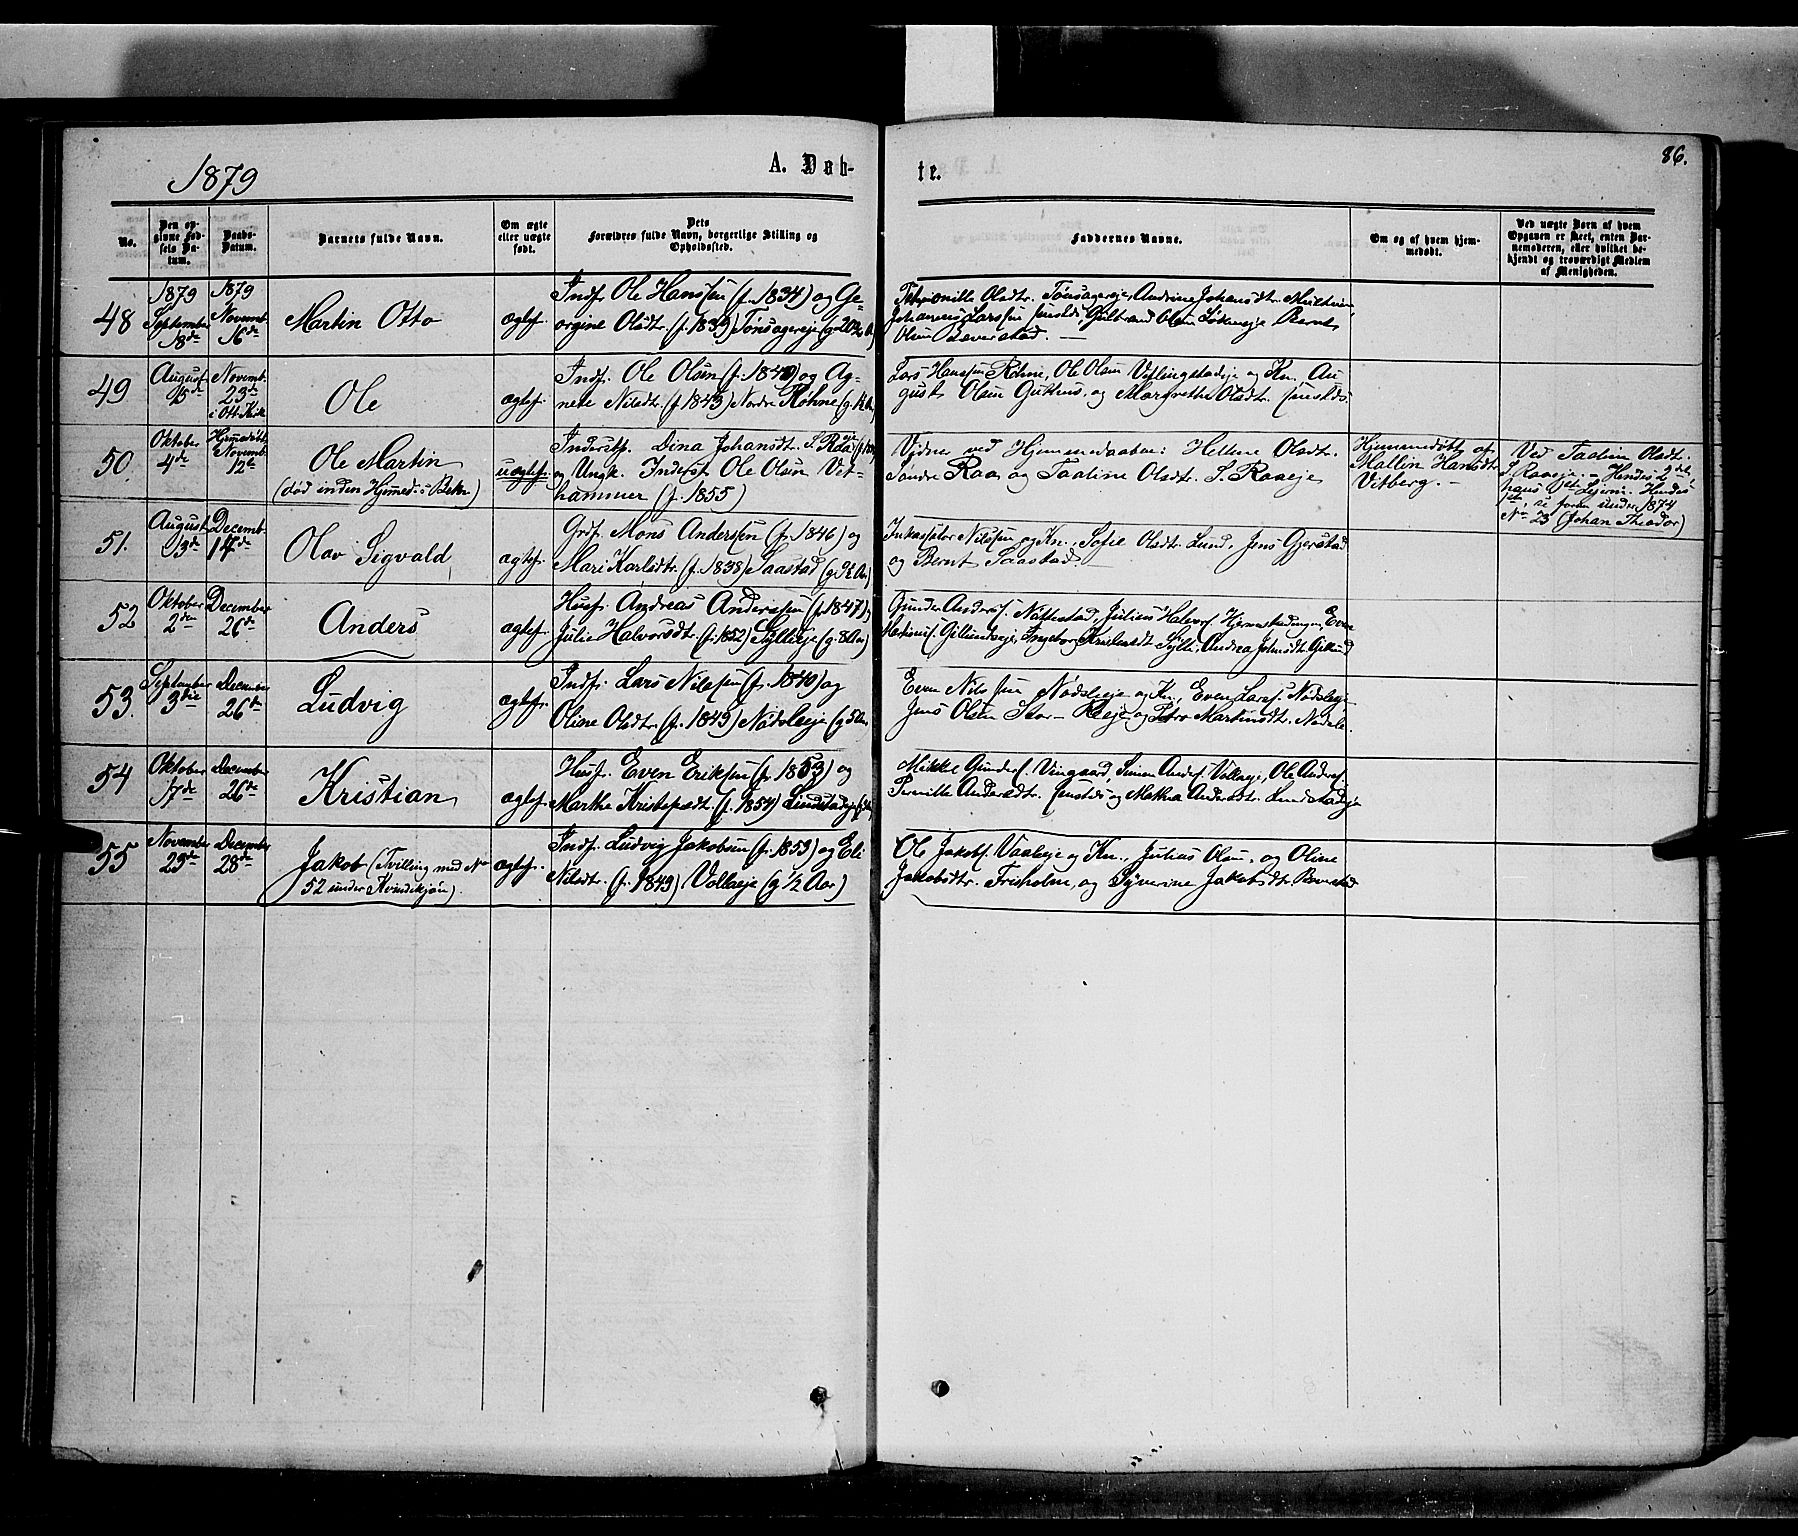 1879
A. Døb-
te.
86.
No.
Den op-
givne Fød-
sels Da-
tum.
Daabs-
Datum.
Barnets fulde Navn.
Om ægte
eller uægte
født.
Dets
Forældres fulde Navn, borgerlige Stilling og
Opholdssted.
Faddernes Navne.
Om og af hvem hjem-
medøbt.
Ved uægte Børn af hvem
Opgaven er skeet, enten Bar-
nemoderen, eller hvilket be-
kjendt og troværdigt Medlem
af Menigheden.
48
1879
September
18de
1879
Novemb.
16de
Martin Otto
ægtef.
Indf. Ole Hanssen (f. 1834) og Ge-
orgine Olsdtr. (f. 1839) Tønsagereje
Olsdtr. Tønsagereje, Andrine Johansdtr.
Johannes Larssen Olsen Bernt
Olsen Beverstad. —
49
August
15de
Novemb.
23de
i Ott. Kirk
Ole
ægtef.
Indf. Ole Olsen (f. 1840) og Ag-
nete Nilsdtr. (f. 1843) Nordre Røhne
Lars Hanssen Røhne, Ole Olsen og Kn. Au-
gust Olsen og Margrethe Olsdtr.
50.
Oktober
4de
Hjemmedøbt
Novemb.
12te
Ole Martin
(død inden Hjemmed.s Bekr.)
uægtef.
Inderstp. Dina Johansdtr. S. Raa
og Ungk. Inderst Ole Olsen Vit-
hammer (f. 1855)
Vidner ved Hjemmedaaben: Hellene Olsdtr.
Søndre Raa og Taaline Olsdtr. S. Raaeje
Hjemmedøbt af
Mallin Hansdtr.
Vitberg. —
Ved Taaline Olsdtr.
S. Raaeje. — Hendes 2det
hans 1ste Lejerm. Hendes
1ste, se foran under 1874
No 23 (Johan Theodor)
51.
August
13de
Decemb.
14de
Olav Sigvald
ægtef.
Grdf. Mons Anderssen (f. 1846) og
Mari Karlsdtr. (f. 1838) Saastad
Inkassator Nilssen og Kn., Sofie Olsdtr. Lund, Jens Gjerstad
og Bernt Saastad. —
52
Oktober
2den
December
26de
Anders
ægtef.
Husf. Andreas Anderssen (f. 1847) og
Julie Halvorsdtr. (f. 1852) Syllieje (g. 8 Aar)
Gunder Anderss. Nattestad, Julius Halvors. Even
Gillundseje, Ingebor Sylli, Andrea Johnsdtr. Gillund
53.
September
3die
December
26de
Ludvig
ægtef.
Indf. Lars Nilssen (f. 1840) og
Oline Olsdtr. (f. 1843) Nødsleeje
Even Nilssen Nødsleeje og Kn., Even Larss. Nødsleeje
Jens Olsen og Petra Martinsdtr.
54
Oktober
17de
December
26de
Kristian
ægtef.
Husf. Even Eriksen (f. 1853) og
Marthe (f. 1854) Lundstadeje
Mikkel Gunders. Vingaard, Simen Anders. Vollaeje, Ole Anders.
Pernille Andersdtr. og Mathea Andersdtr. Lundstadeje
55
November
23de
December
28de
Jakob (Tvilling med No
52 under Kvindekjøn).
ægtef.
Indf. Ludvig Jakobsen (f. 1853) og Eli
Nilsdtr. (f. 1849) Vollaeje (g. ½ Aar)
Ole Jakobs. og Kn., Julius Olsen, og Oline
Jakobsdtr. Frisholm, og Synerine Jakobsdtr.